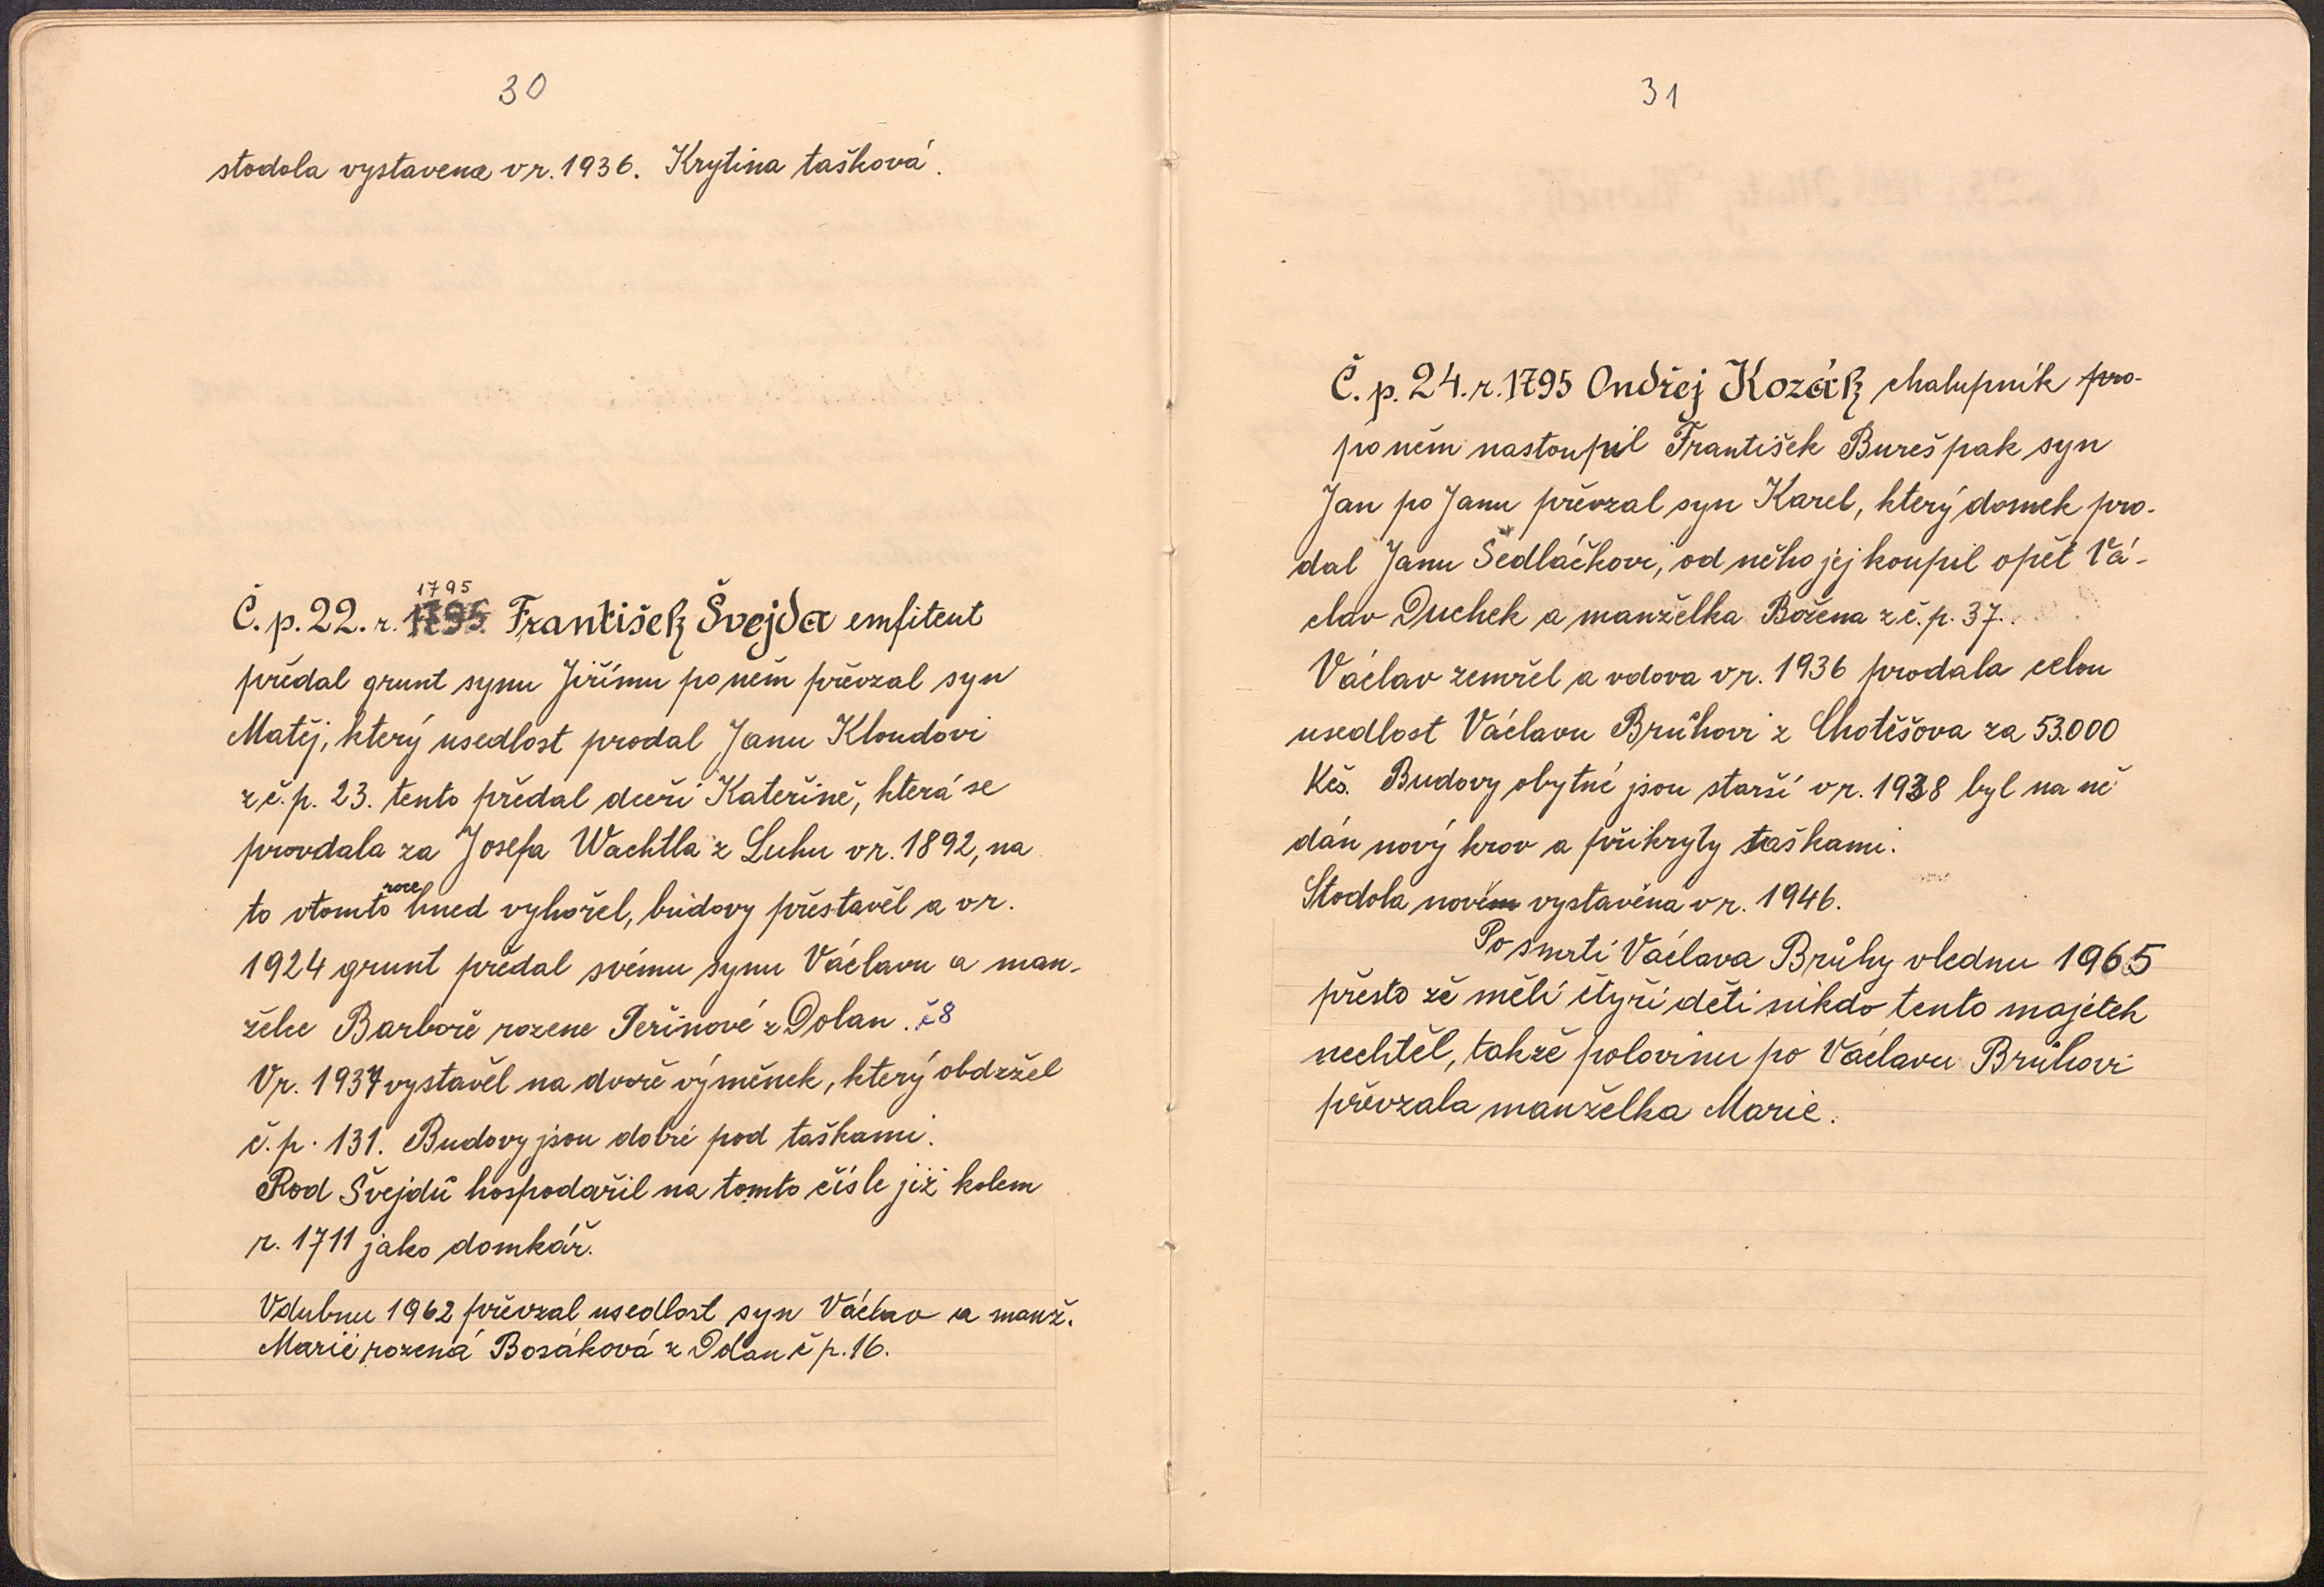 30
stodola vystavena v r. 1936. Krytina tašková.
1795
Č. p. 22. r. 1795. František Švejda emfiteut
předal grunt synu Jiřímu po něm převzal syn
Matěj, který usedlost prodal Janu Kloudovi
z č. p. 23. tento předal dceři Kateřině, která se
provdala za Josefa Wachtla z Luhu v r. 1892, na
to vtomto roce hned vyhořel, budovy přestavěl a v r.
1924 grunt předal svému synu Václavu a man-
želce Barboře rozene Peřinové z Dolan. č8
V r. 1937 vystavěl na dvoře výměnek, který obdržel
č. p. 131. Budovy jsou dobré pod taškami.
Rod Švejdů hospodařil na tomto čísle již kolem
r. 1711 jako domkář.
Vdubnu 1962 převzal usedlost syn Václav a manž.
Marie rozená Bosáková z Dolan č p. 16.
31
Č. p. 24. r. 1795 Ondřej Kozák chalupník pro-
po něm nastoupil František Bureš pak syn
Jan po Janu převzal syn Karel, který domek pro-
dal Janu Sedláčkovi, od něho jej koupil opět Vá-
clav Duchek a manželka Božena z č. p. 37.
Václav zemřel a vdova v r. 1936 prodala celou
usedlost Václavu Brůhovi z Chotěšova za 53.000
Kčs. Budovy obytné jsou starší v r. 1938 byl na ně
dán nový krov a přikryty taškami.
Stodola novém vystavěna v r. 1946.
Po smrti Václava Brůhy vlednu 1965
přesto že měli čtyři děti nikdo tento majetek
nechtěl, takže polovinu po Václavu Brůhovi
převzala manželka Marie.